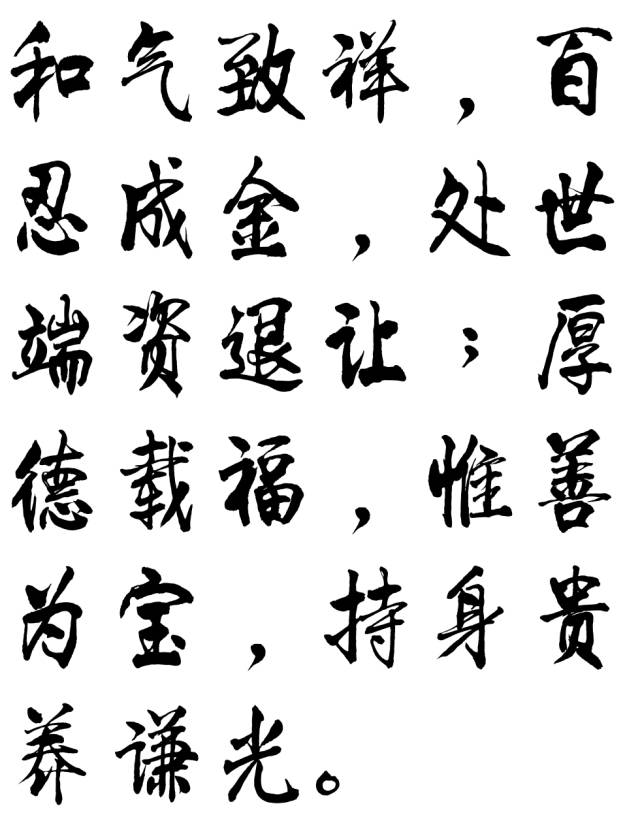 和气致祥，百
忍成金，处世
端资退让；厚
德载福，惟善
为宝，持身贵
养谦光。